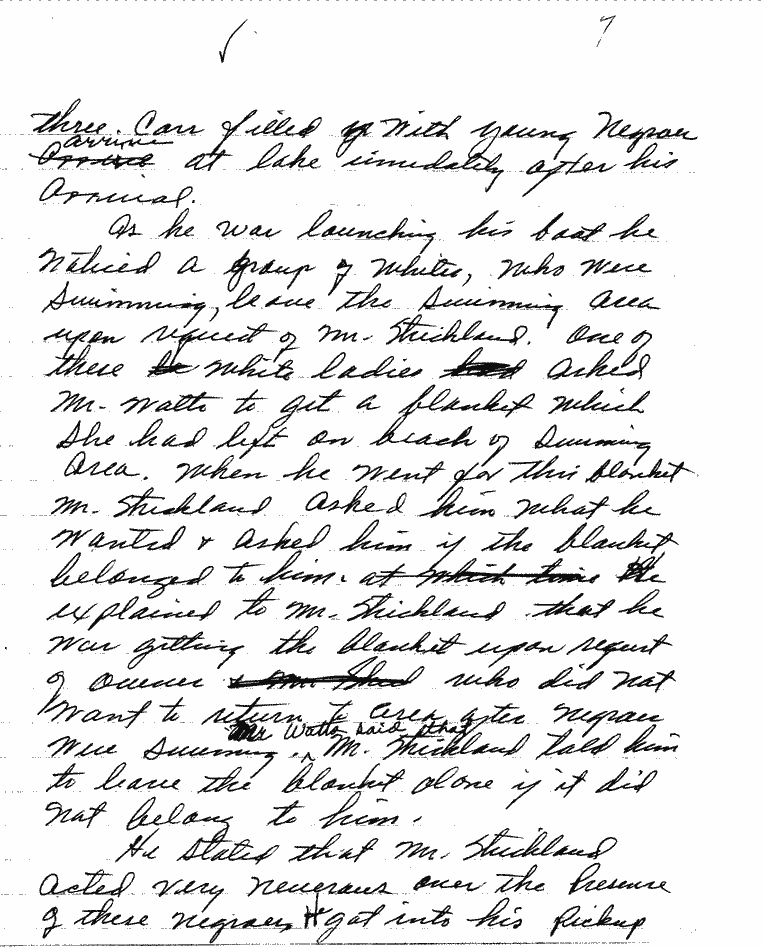 7
three. Carr filled up with young Negroes
arrive
at lake immediately after his
arrival.
As he was launching his boat he
noticed a group of whites, who were
swimming, leave the swimming area
upon request of Mr. Strickland. One of
these white ladies asked
Mr. Watts to get a blanket which
she had left on beach of swimming
area. When he went for this blanket
Mr. Strickland asked him what he
wanted & asked him if the blanket
belonged to him. at which time He
explained to Mr. Strickland that he
was getting the blanket upon request
of owner who did not
want to return to area after Negroes
Mr Watts said that
were swimming. Mr. Strickland told him
to leave the blanket alone if it did
not belong to him.
He stated that Mr. Strickland
acted very neuerous over the presense
of these negroes, & got into his pickup